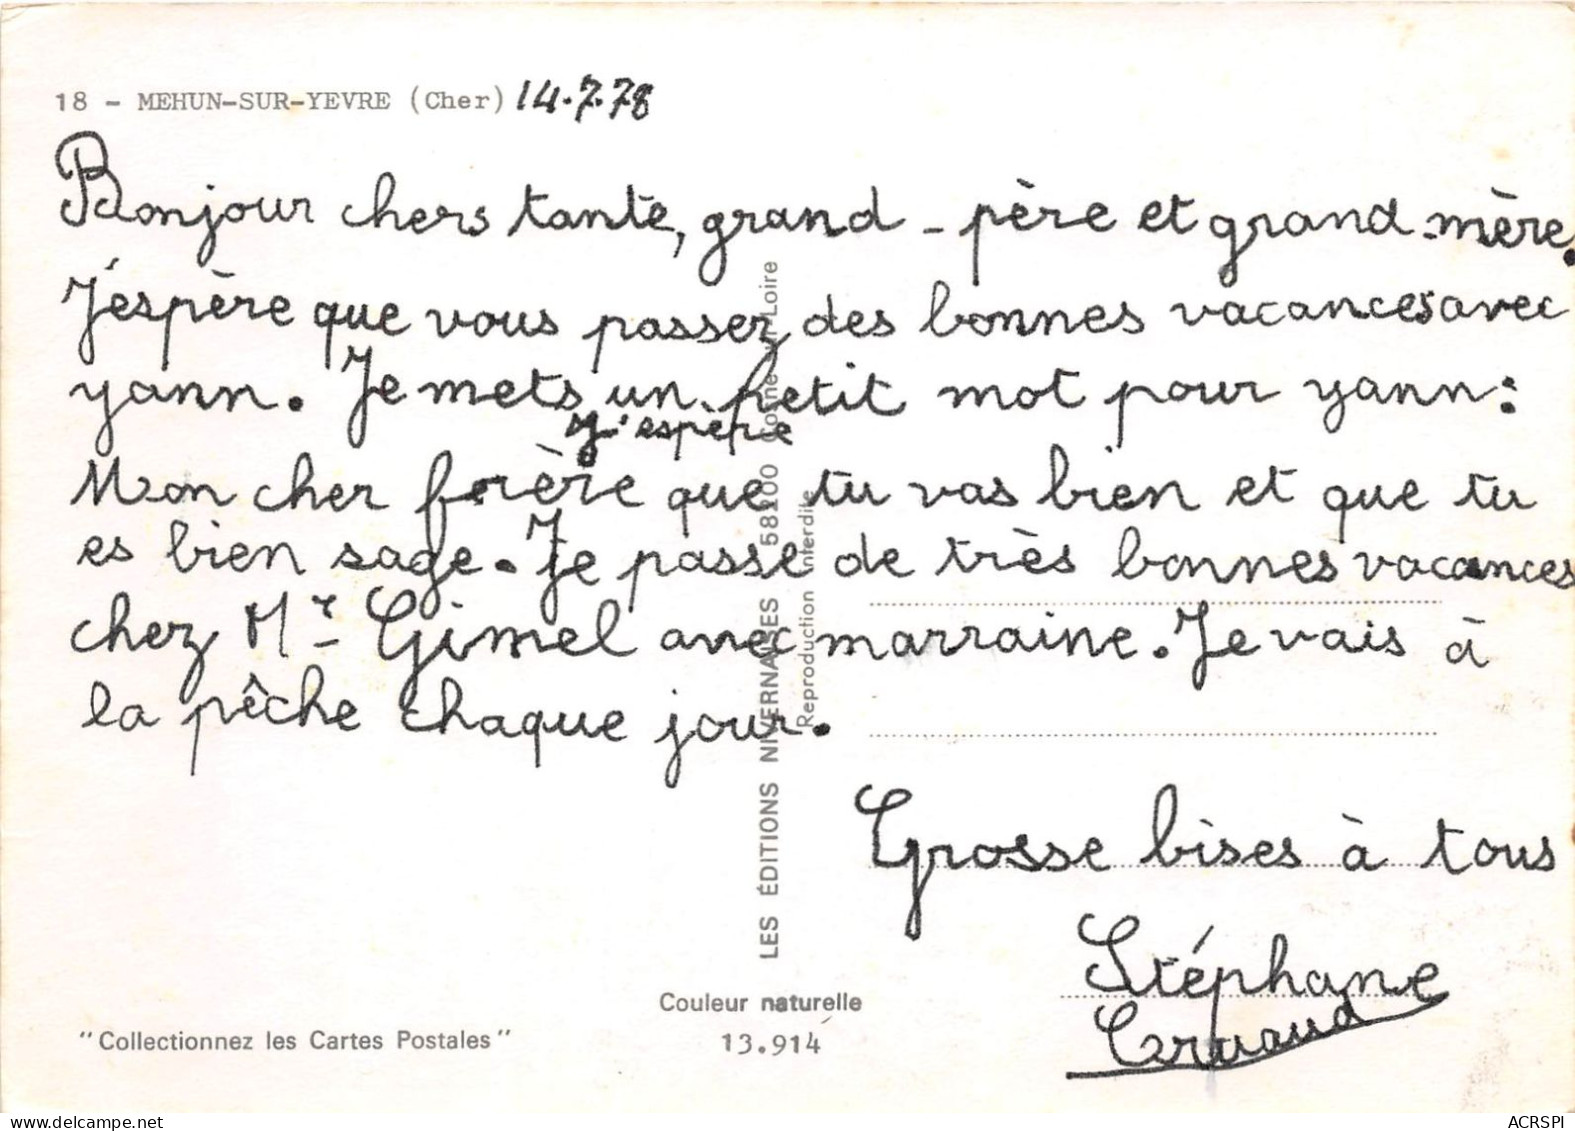 18 - MEHUN-SUR-YEVRE (Cher) 14.7.78
Bonjour chers tante, grand-père et grand-mère.
J'espère que vous passez des bonnes vacances avec
yann. Je mets un petit mot pour yann:
j'espère
Mon cher frère que tu vas bien et que tu
es bien sage. Je passe de très bonnes vacances
chez Mr Gimel avec marraine. Je vais à
la pêche chaque jour.
Grosse bises à tous
Stéphane
LES ÉDITIONS NIVERNAISES 58200 Cosne-sur-Loire
Reproduction interdite
Couleur naturelle
13.914
"Collectionnez les Cartes Postales"
ACRSPI